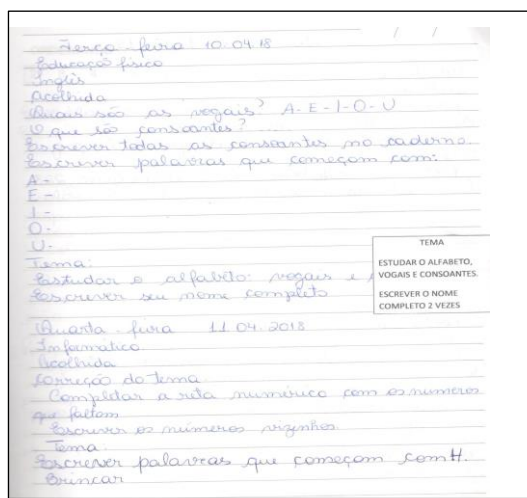 / /
Terça - feira 10.04.18
Educação física
Inglês
Acolhida
Quais são as vogais? A-E-I-O-U
O que são consoantes?
Escrever todas as consoantes no caderno.
Escrever palavras que começam com:
A -
E -
I -
O -
U -
Tema:
Estudar o alfabeto: vogais e
Escrever seu nome completo
TEMA
ESTUDAR O ALFABETO,
VOGAIS E CONSOANTES.
ESCREVER O NOME
COMPLETO 2 VEZES
Quarta - feira 11.04.2018
Informática
Acolhida
Correção do tema
Completar a reta numérica com os numeros
que faltam
Escrever os números vizinhos.
Tema.
Escrever palavras que começam com H.
Brincar